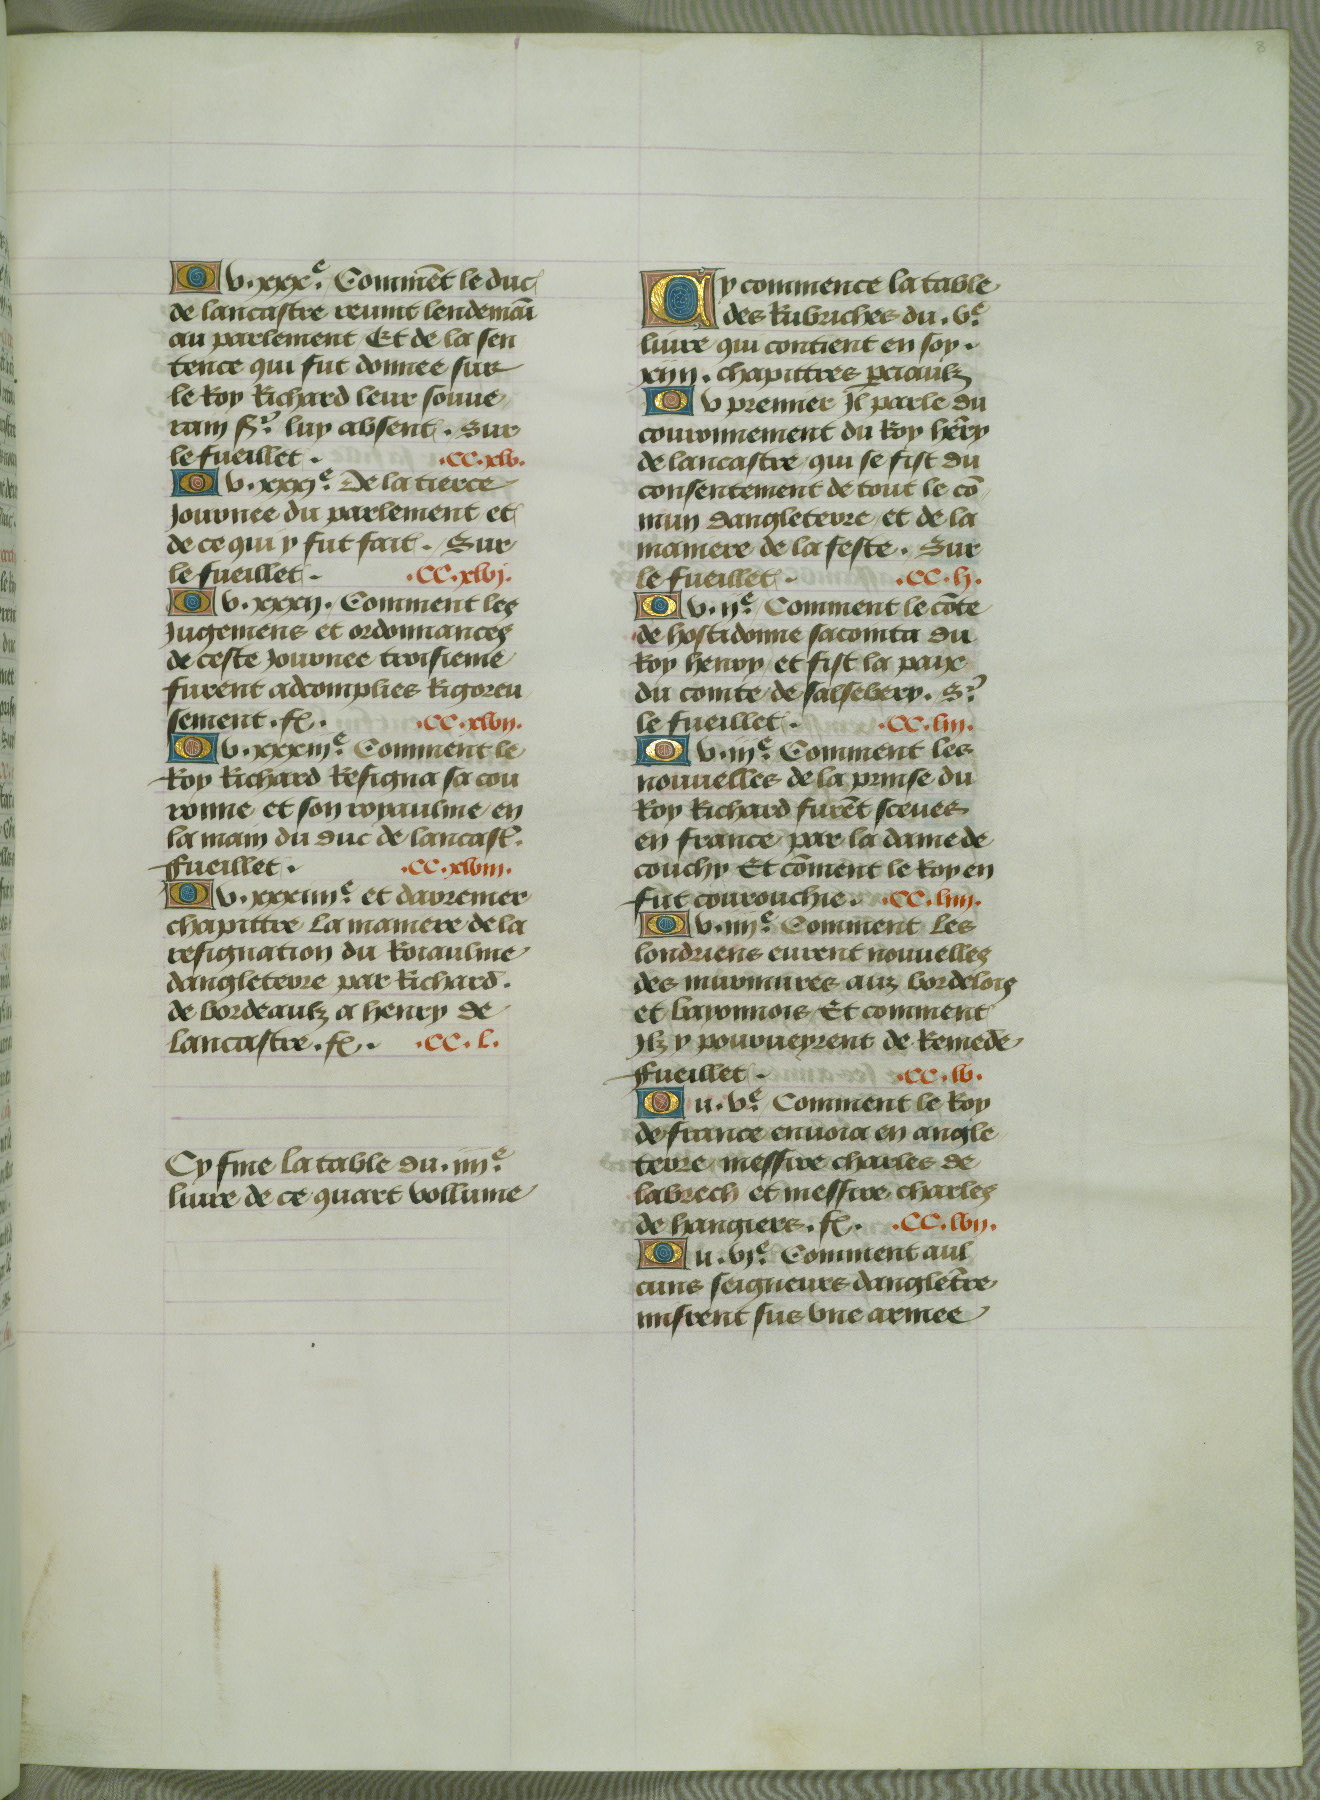 8
Ou .xxx.e Comme͂t le duc
de lancastre reuint lendemai͂
au parlement Et de la sen
tence qui fut donnee sur
le Roy Richard leur souue
rain sr. luy absent. Sur
le fueillet. .CC.xlv.
Ou .xxxj.e De la tierce
Journee du parlement et
de ce qui y fut fait. Sur
le fueillet. .CC.xlvj.
Ou .xxxij. Comment les
Jugemens et ordonnances
de ceste Journee troisieme
furent adcomplies Rigoreu
sement. fe. .CC.xlvij.
Ou .xxxiij.e Comment le
Roy Richard Resigna sa cou
ronne et son royaulme en
la main du duc de lancast̃.
ffueillet. .CC.xlviij.
Ou .xxxiiij.e et darremier
chapittre La maniere de la
resignation du Roiaulme
dangleterre par Richard.
de bordeaulz a henry de
lancastre. fe. .CC.l.
Cy fine la table du .iiij.e
liure de ce quart vollume
Cy commence la table
des Rubriches du .ve.
liure qui contient en soy.
xiiij. chapittres p̱ciaulz
Ou premier Il parle du
couronnement du Roy he͂ry
de lancastre qui se fist du
consentement de tout le co͂
mun dangleterre et de la
maniere de la feste. Sur
le fueillet. .CC.lj.
Ou .ij.e Comment le co͂te
de hostidonne sacointa du
Roy henry et fist la paix
du comte de salsebery. Sr
le fueillet. .CC.liij.
Ou .iij.e Comment les
nouuelles de la prinse du
Roy Richard fure͂t sceues
en france par la dame de
couchy Et co͂ment le Roy en
fut courouchie. .CC.liiij.
Ou .iiij.e Comment Les
londriens eurent nouuelles
des murmures aux bordelois
et bayonnois Et comment
Ilz y pourueyrent de Remede
ffueillet. .CC.lv.
Ou .v.e Comment le Roy
de france enuoia en angle
terre messire charles de
labrech et messire charles
de hangiers. fe. .CC.lvij.
Ou .vj.e Comment aul
cuns seigneurs dangletr̃e
misrent sus vne armee